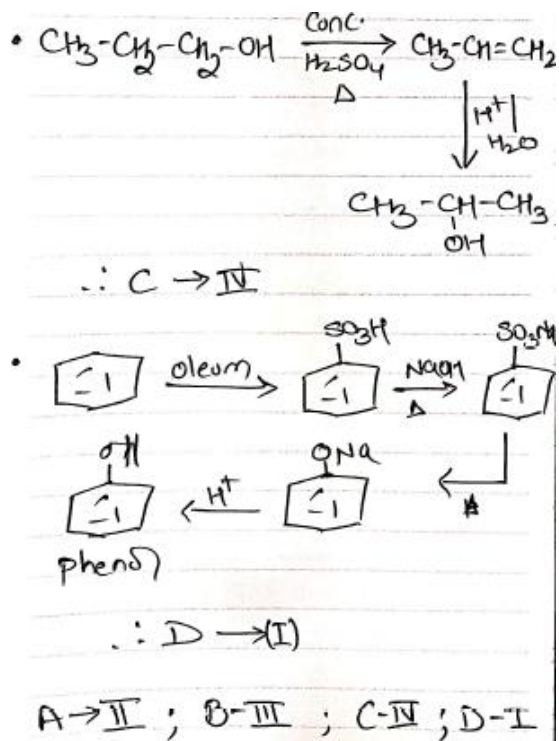 • CH3-CH2-CH2-OH Conc. H2SO4 Δ → CH3-CH=CH2
H+ | H2O
CH3-CH-CH3
OH
∴ C → IV
• oleum → SO3H NaOH Δ → SO3Na
OH H+ ← ONa ←
phenol
∴ D → (I)
A → II ; B-III ; C-IV ; D-I